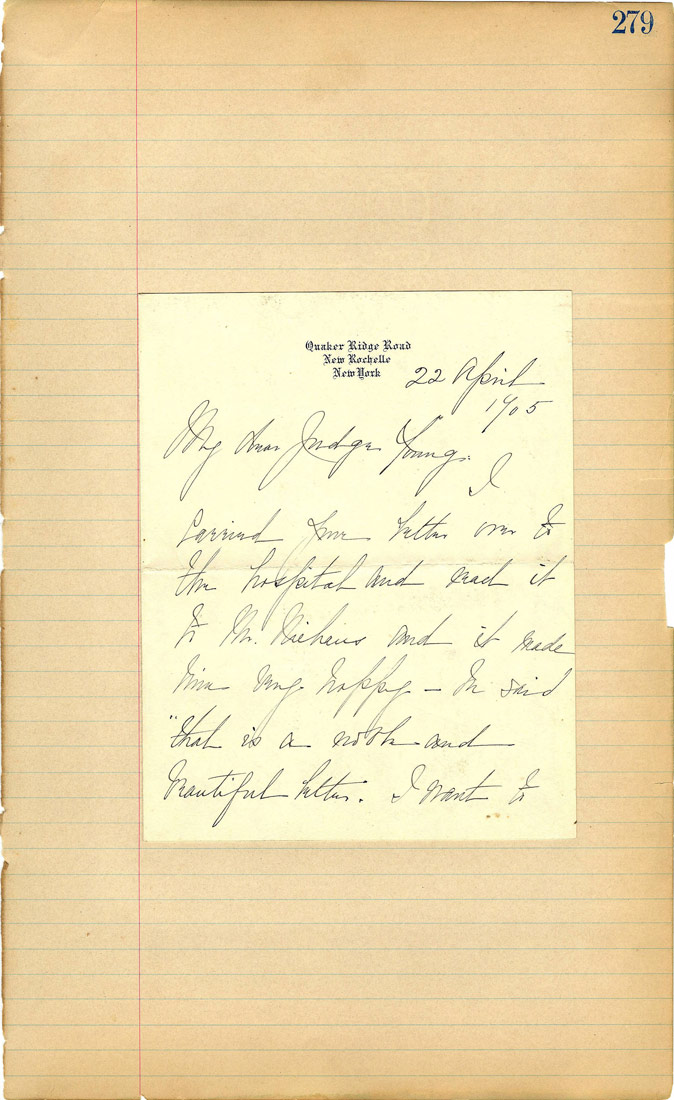 279
Quaker Ridge Road
New Rochelle
New York
22 April
1905
My dear Judge Young:
I
carried your letter over to
the hospital and read it
to Mr. Niehaus and it made
him very happy — He said
"that is a noble and
beautiful letter. I want to